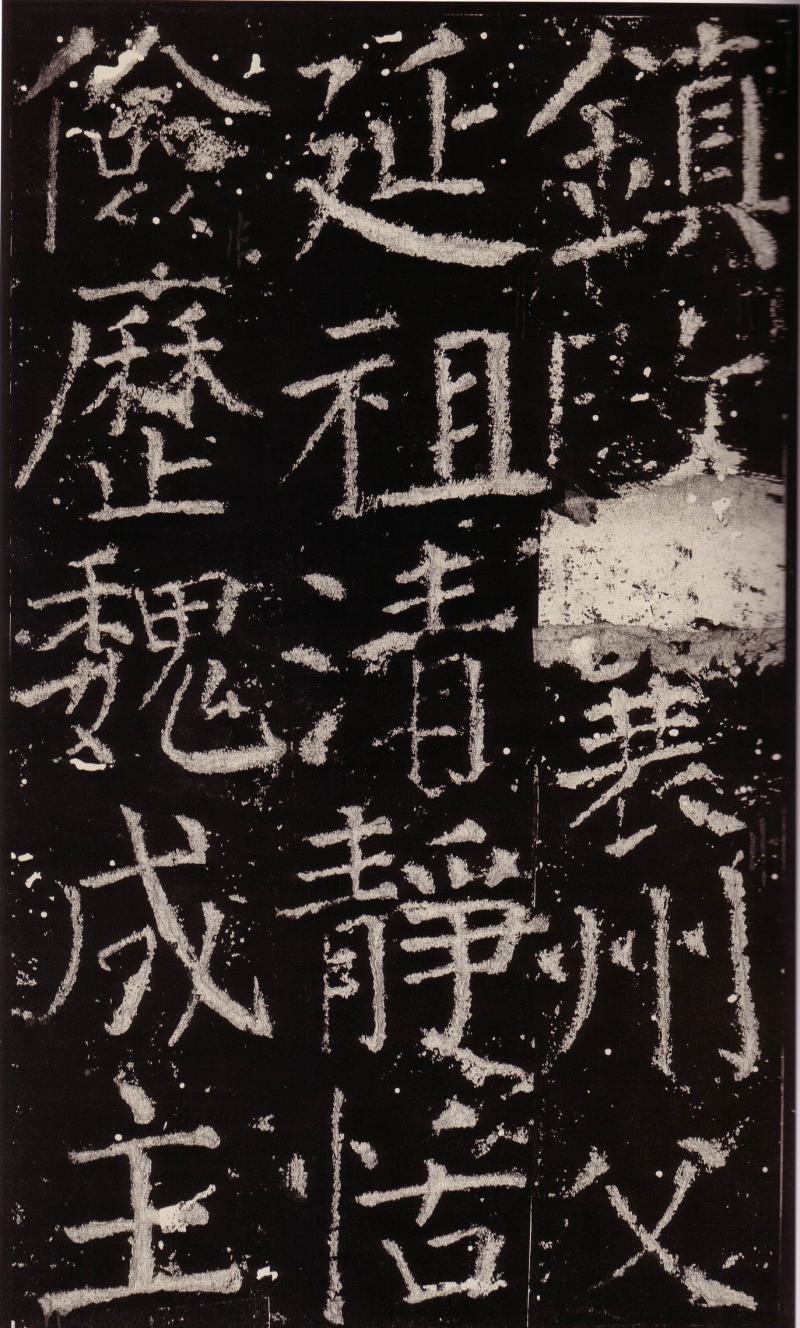 鎮改襄州父
延祖清靜恬
儉歷魏成主